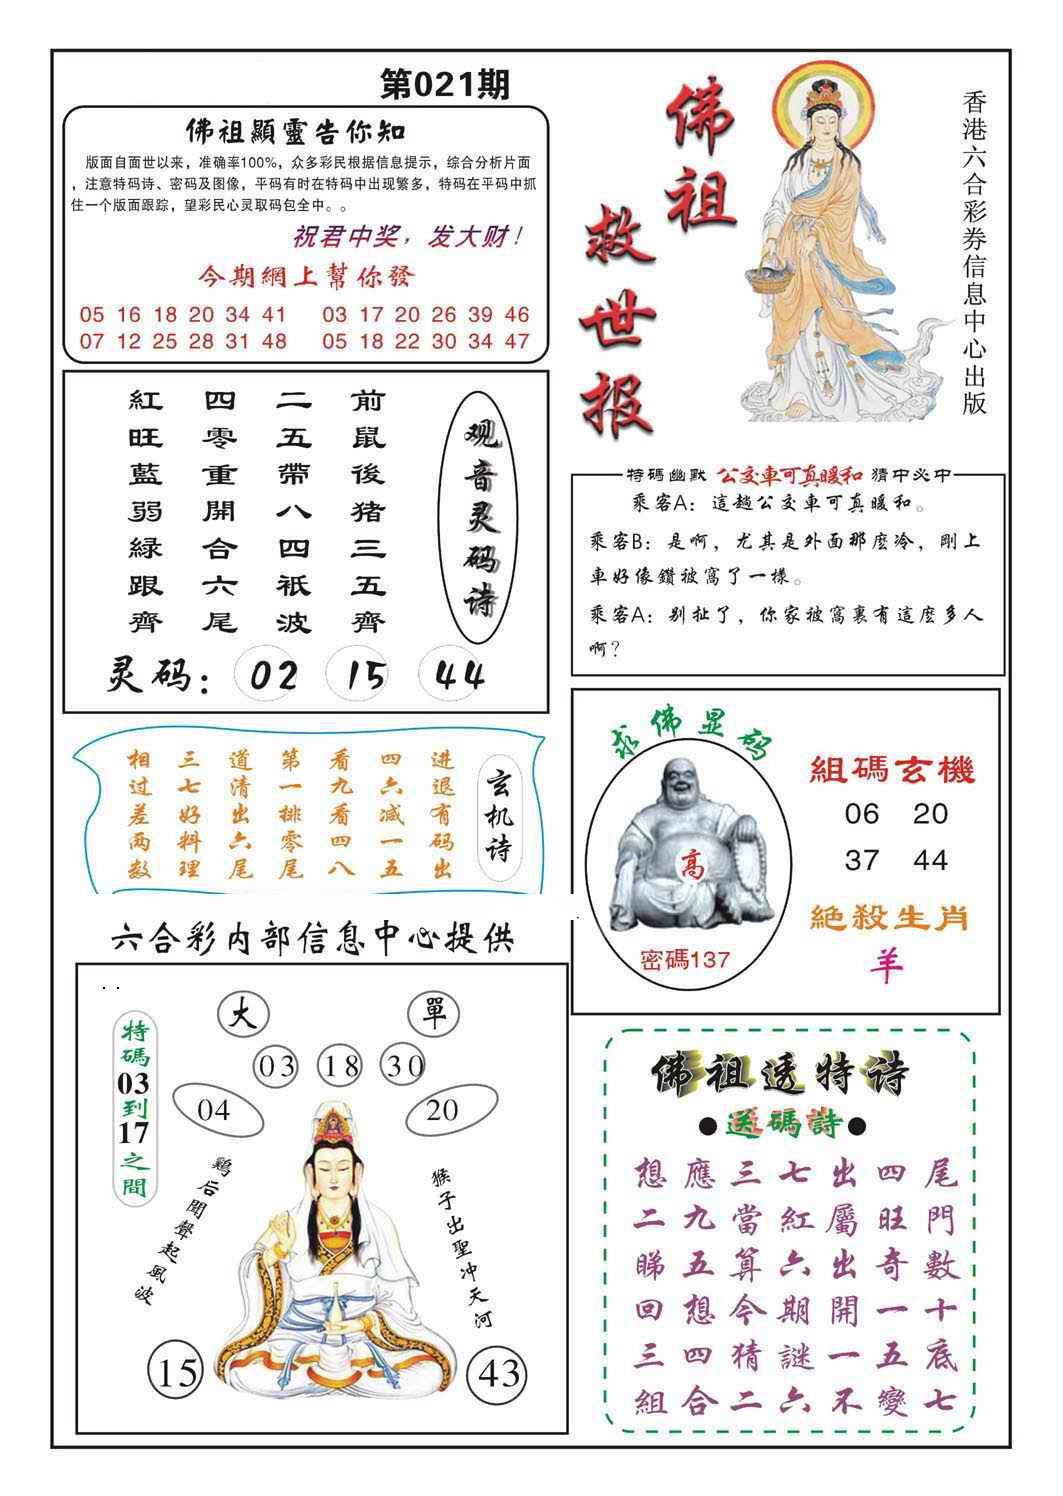 第021期
佛祖顯靈告你知
版面自面世以来，准确率100%，众多彩民根据信息提示，综合分析片面
，注意特码诗、密码及图像，平码有时在特码中出现繁多，特码在平码中抓
住一个版面跟踪，望彩民心灵取码包全中。。
祝君中奖，发大财！
今期網上幫你發
05 16 18 20 34 41 03 17 20 26 39 46
07 12 25 28 31 48 05 18 22 30 34 47
佛祖
救世报
香港六合彩券信息中心出版
观音灵码诗
前鼠後猪三五齊
二五帶八四祇波
四零重開合六尾
紅旺藍弱緑跟齊
灵码：02 15 44
特碼幽默 公交車可真暖和 猜中必中
乘客A：這趟公交車可真暖和。
乘客B：是啊，尤其是外面那麽冷，剛上
車好像鑽被窩了一樣。
乘客A：别扯了，你家被窩裏有這麽多人
啊？
玄机诗
进退有码出
四六减一五
看九看四八
第一排零尾
道清出六尾
三七好料理
相过差两数
求佛显码
高
密碼137
組碼玄機
06 20
37 44
絶殺生肖
羊
六合彩内部信息中心提供
大 單
03 18 30
04 20
特碼03到17之間
鷄后聞聲起風波
猴子出聖冲天河
15 43
佛祖透特诗
●送碼詩●
想應三七出四尾
二九當紅屬旺門
睇五算六出奇數
回想今期開一十
三四猜謎一五底
組合二六不變七